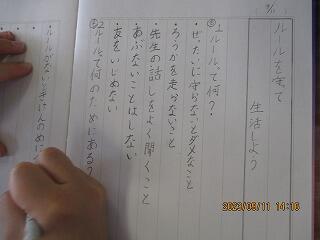 9/11
ルールを守って
生活しよう
①ルールって何?
・ぜったいに守らないとダメなこと
・ろうかを走らないこと
・先生の話しをよく聞くこと
・あぶないことはしない
・友をいじめない
②ルールって何のためにある?
ルールがないときけんのめに
2023/09/11 14:16